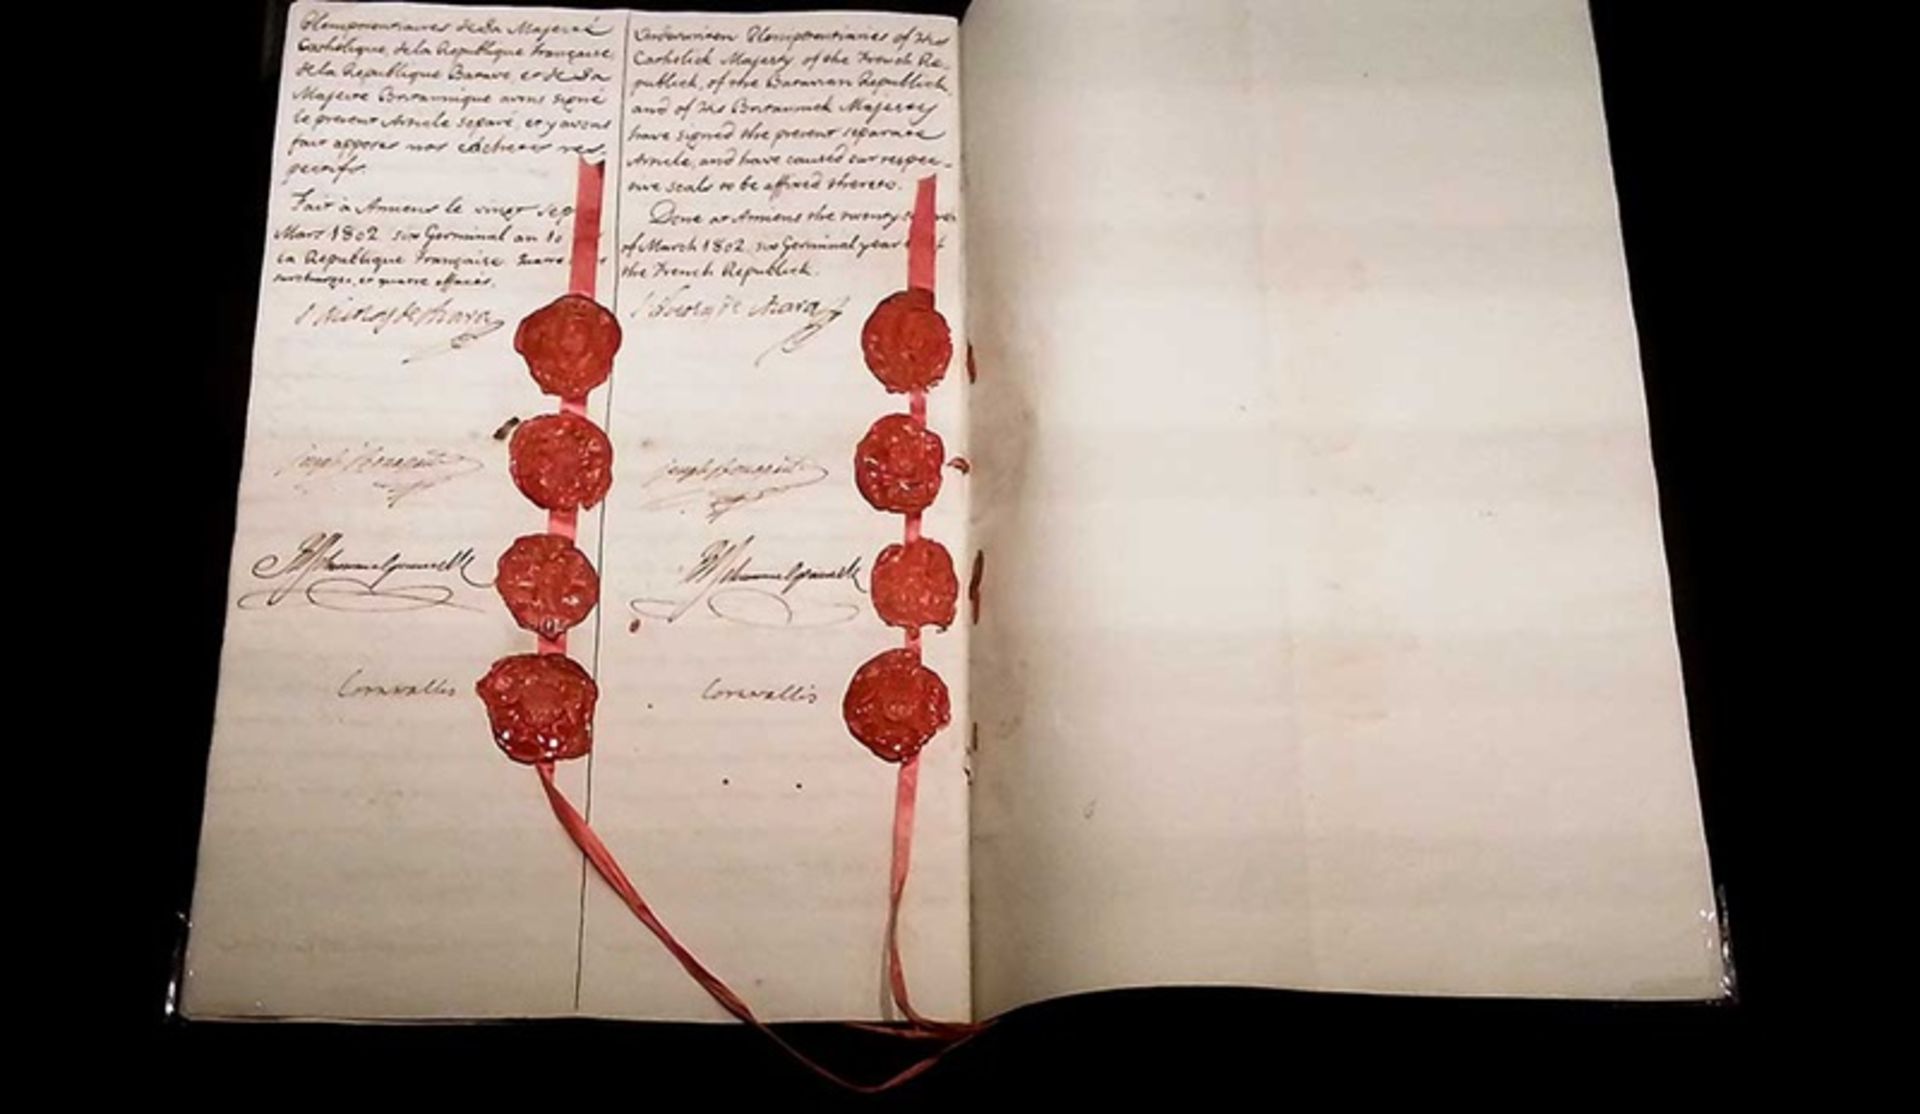 Plenipotentiaires de Sa Majesté
Catholique, de la Republique Française,
de la Republique Batave et de Sa
Majesté Britannique avons signé
le present Article separé, et y avons
fait apposer nos cachets res-
pectifs.
Fait à Amiens le vingt sep
Mars 1802. six Germinal an 10
la Republique Française.
surchargés, et quatre effacés.
J. Nicolas de Azara
Joseph Bonaparte
RJ Schimmelpenninck
Cornwallis
Underwritten Plenipotentiaries of His
Catholick Majesty of the French Re-
publick, of the Batavian Republick,
and of His Britannick Majesty
have signed the present separate
Article, and have caused our respec-
tive seals to be affixed thereto.
Done at Amiens the twenty
of March 1802. six Germinal year
the French Republick.
J. Nicolas de Azara
Joseph Bonaparte
RJ Schimmelpenninck
Cornwallis